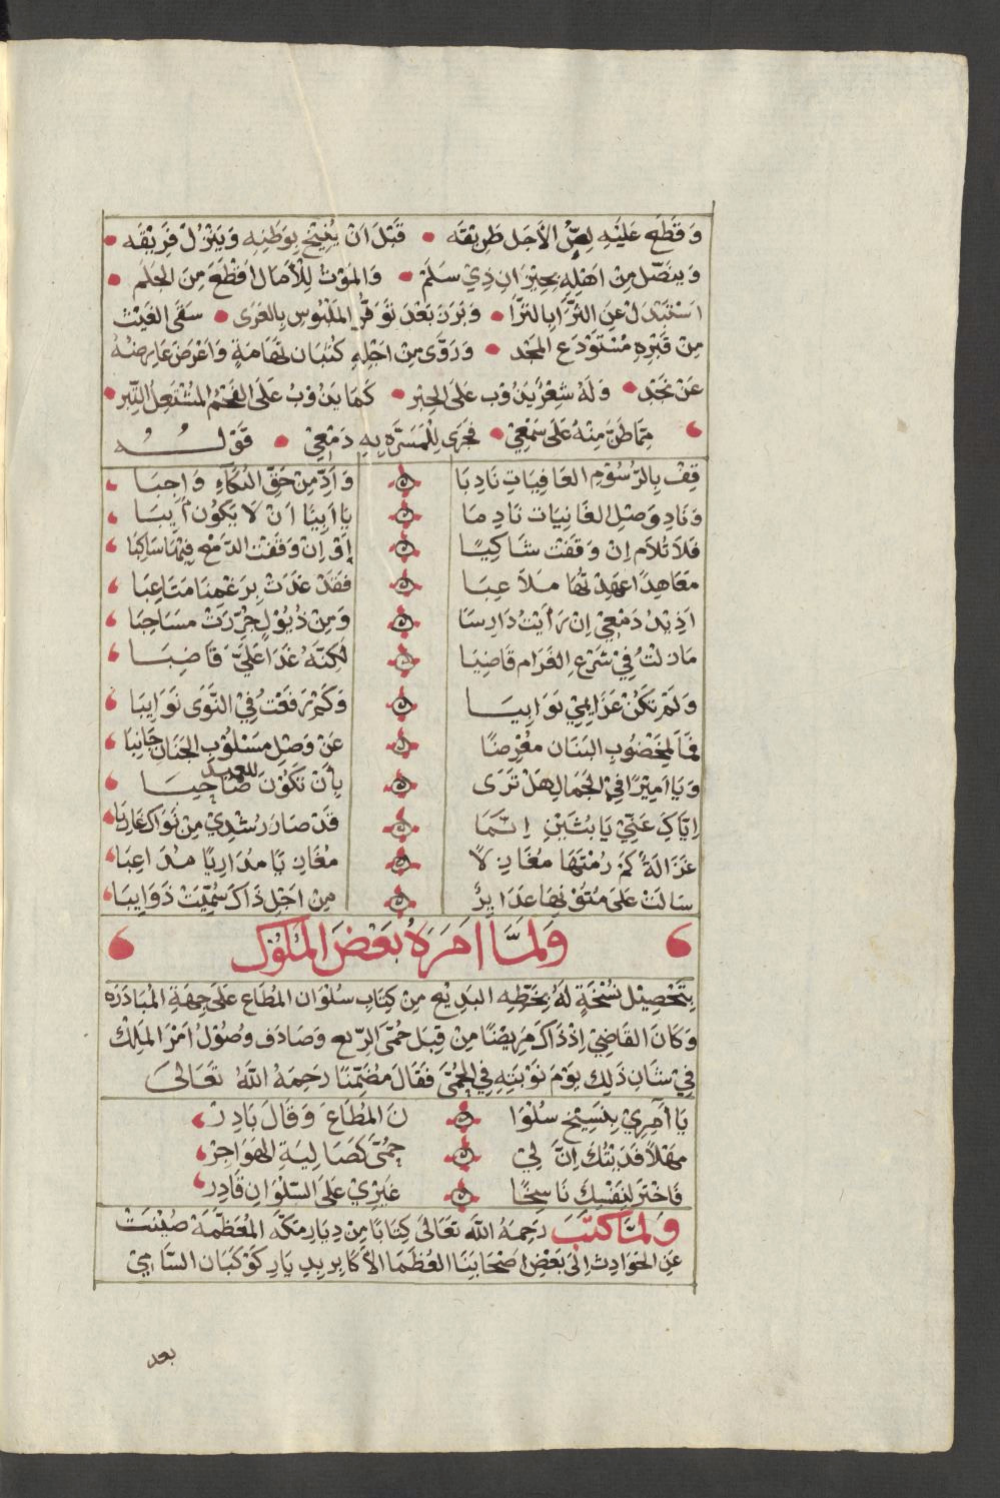 وَقَطَعَ عَلَيْهِ لِصُّ الأَجَل طَرِيْقَه • قَبْلَ اَنْ يُنِيْخَ بِوَطَنِهِ وَيَنْزُلَ فَرِيْقَه •
وَيتصّل مِنْ اَهْلِهِ بِجِيْرَانِ ذِيْ سَلَمْ • وَالمَوْتُ لِلْآمَال اَقْطَعُ مِنَ الجَلَم •
اسْتَبْدَلَ عَنِ الثُّرَيَّا بِالثَّرَى • وَبَرَزَ بَعْدَ تَوَفُّرِ المَلْبُوسِ بِالعَرَى • سَقَى الغَيْث
مِنْ قَبْرِهِ مُسْتَوْدَعِ المَجْد • وَرَوَّى مِنْ اَجْلِهِ كُثْبَانَ تَهَامَةٍ وَاَعْرَضَ عَارِضُهُ
عَنْ نَجْدِ • وَلَهُ شِعْرٌ يَذُوْبُ عَلَى الحِبْر • كَمَا يَذُوْبُ عَلَى الفَحْمِ المُشْتَعِلِ التِّبْر •
مِمَّا طَنَّ مِنْهُ عَلَى سَمْعِيْ • فَجَرَى لِلْمَسَرَّةِ بِهِ دَمْعِيْ • قَوْلُـــهُ
قِفْ بِالرُّسُوْمِ العَافِيَاتِ نَادِبَا وَاَدِّ مِنْ حَقِّ البُكَآءِ وَاجِبَا
وَنَادِ وَصْلِ الغَانِيَات نَادِمَا يَا اَبِيًا اَنْ لَا يَكُوْن أَيِبَا
فَلَا تُلَام اِنْ وَقَفْتَ شَاكِيًا اَوْ اِنْ وَقَفْتَ الدَّمْعَ فِيْهَا سَاكِبَا
مَعَاهِدًا عَهِدْتُهَا مَلَاعِبَا فَقَدْ غَدَتْ بِرَغْمِنَا مَتَاعِبَا
اُذِيْلُ دَمْعِيْ اِنْ رَأَيْتُ دَارِسَا وَمِنْ ذُيُوْلٍ جُرِّرَتْ مَسَاحِبَا
مَازِلْتُ فِيْ شَرْعِ الغَرَام قَاضِيَا لَكِنَّهُ غَدَا عَلَيَّ قَاضِبَا
وَلَمْ تَكُنْ عَزَايِمِيْ نَوَابِيَا وَكَمْ رَفَعْتُ فِيْ النَّوَى نَوَايِبَا
فَمَا لِمَخْضُوبِ البَنَان مُعْرِضًا عَنْ وَصْلِ مَسْلُوْبِ الجَنَان جَانِبَا
وَيَا اَمِيْرًا فِيْ الجَمَالِ هَلْ تَرَى بِأَنْ تَكُوْنَ للعبد صَاحِبَا
اِيَّاكِ عَنِّيْ يَا بُثَيْنُ اِنَّمَا قَدْ صَارَ رُشْدِيْ مِنْ نَوَاكِ غَارِبَا
غَزَالَةٌ كَمْ رُمْتُهَا مُغَازِلًا مُغَازِيًا مُدَارِيًا مُدَاعِبَا
سَالَتْ عَلَى مُتُوْنِهَا غَدَايِرٌ مِنْ اَجْلِ ذَاكَ سُمِّيَتْ ذَوَايِبَا
وَلَمَّا اَمَرَهُ بَعْضَ المُلُوْك
بِتَحْصِيْل نُسْخَةٍ لَهُ بِخَطِّهِ البَدِيْعِ مِنْ كِتَابِ سُلْوَان المُطَاع عَلَى جِهَةِ المُبَادَرَه
وَكَانَ القَاضِيْ اِذْ ذَاكَ مَرِيْضًا مِنْ قِبَل حُمَّى الرِّبْعِ وَصَادَف وُصُوْلُ اَمْرُ المَلِكْ
فِيْ شَانِ ذَلِك يَوْمَ نَوْبَتِهِ فِي الحُمَّى فَقَالَ مُضَمِّنًا رَحِمَهُ اللّٰهُ تَعَالَى
يَا آمِرِيْ بِنَسْخِ سُلْوَا نَ المُطَاعَ وَقَالَ بَادِرْ
مَهْلاً فَدَيْتُكَ اِنَّ لِيْ حُمَّى كَصَالِيَةِ الهَوَاجِرْ
فَاخْتَرْ لِنَفْسِكَ نَاسِخًا غَيْرِيْ عَلَى السُّلْوَانِ قَادِر
وَلَمَّا كَتَبَ رَحِمَهُ اللّٰه تَعَالَى كِتَابًا مِنْ دِيَارِ مَكَّه المُعَظَّمَة صِيْنَتْ
عَنِ الحَوَادِث اِلَى بَعْضِ اَصْحَابِنَا العُظَمَا الأَكَابِر بِدِيَارِ كَوْكَبَان السَّامِيْ
بعد